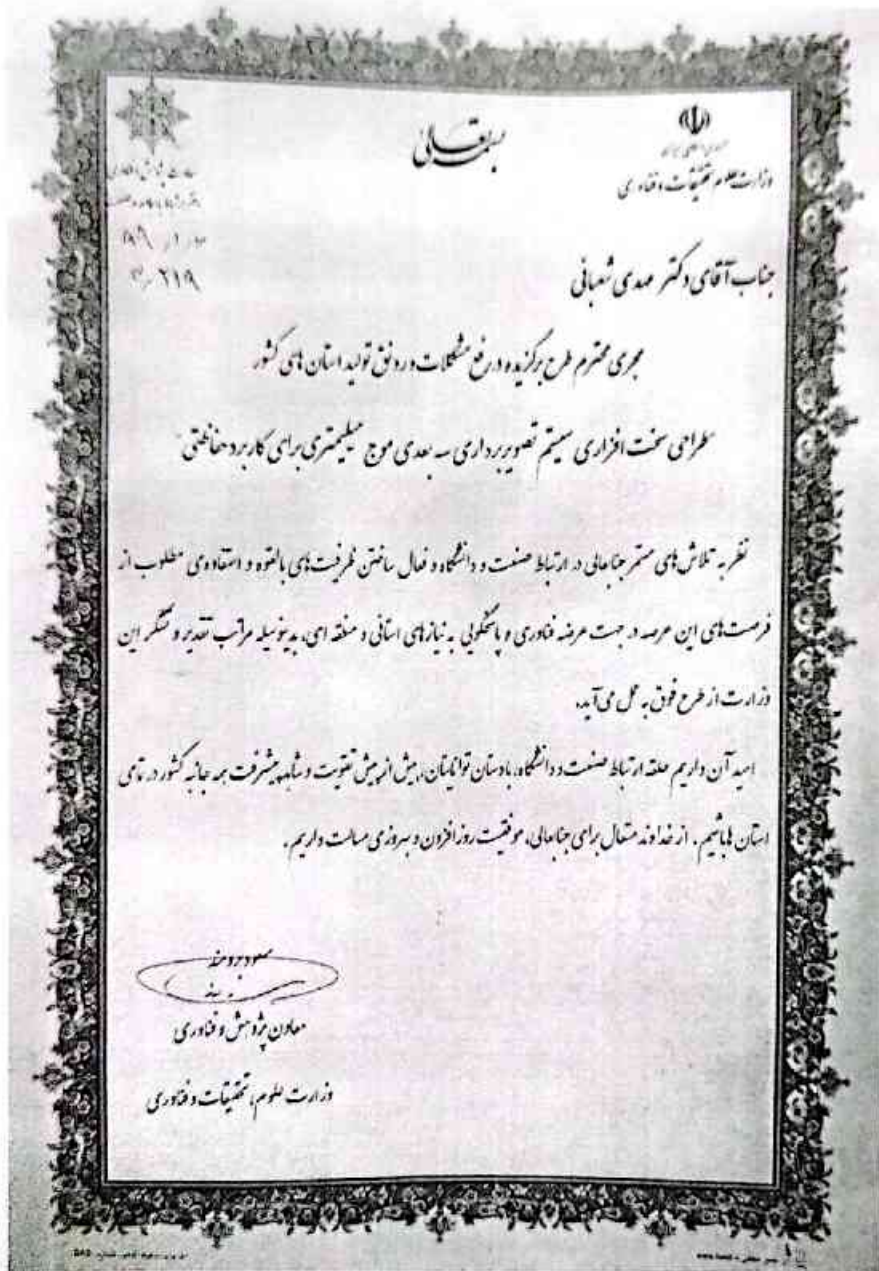 بسمه تعالی
جمهوری اسلامی ایران
وزارت علوم تحقیقات و فناوری
جناب آقای دکتر مهدی شعبانی
مجری محترم طرح برگزیده در رفع مشکلات و رونق تولید استان های کشور
"طراحی سخت افزاری سیستم تصویربرداری سه بعدی موج میلیمتری برای کاربرد حفاظتی"
نظر به تلاش های مستمر جنابعالی در ارتباط صنعت و دانشگاه و فعال ساختن ظرفیت های بالقوه و استفاده ی مطلوب از
فرصت های این عرصه در جهت عرضه فناوری و پاسخگویی به نیازهای استانی و منطقه ای، بدینوسیله مراتب تقدیر و تشکر این
وزارت از طرح فوق به عمل می آید.
امید آن داریم حلقه ارتباط صنعت و دانشگاه، با دستان توانایتان، بیش از پیش تقویت و شاهد پیشرفت همه جانبه کشور در تمامی
استان ها باشیم. از خداوند متعال برای جنابعالی، موفقیت روزافزون و بهروزی مسالت داریم.
مسعود برومند
معاون پژوهش و فناوری
وزارت علوم، تحقیقات و فناوری